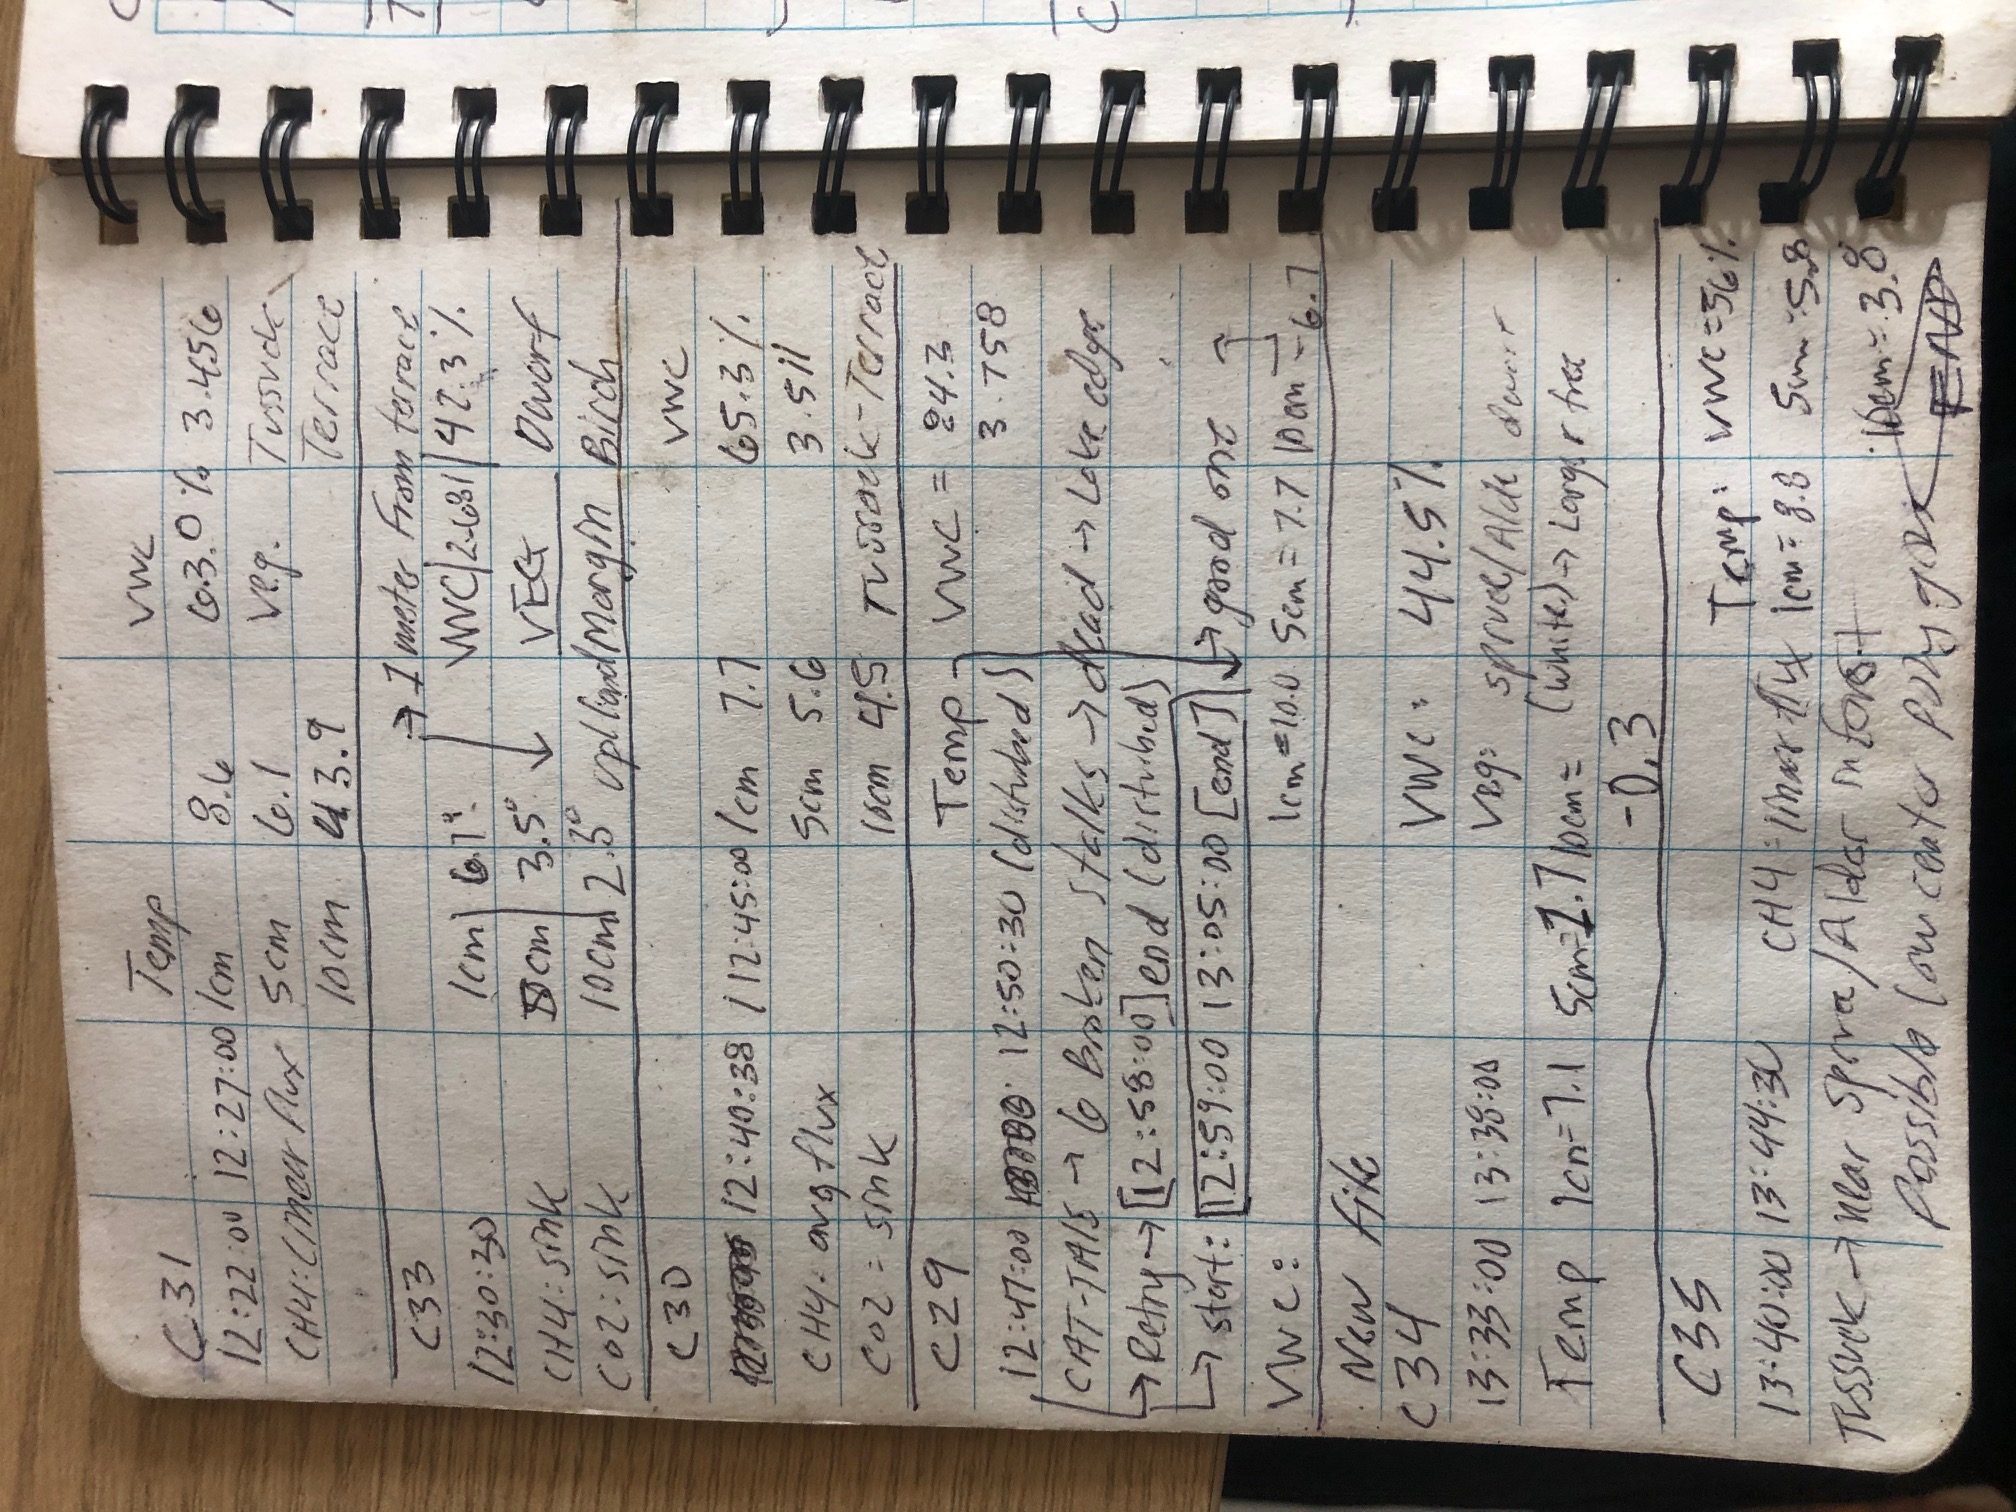 Temp VWC
C31
12:22:00 12:27:00 1cm 8.6 63.0% 3.456
CH4: Linear flux 5cm 6.1 Veg. Tussuck
10cm 3.9 Terrace
C33 → 1 meter from terrace
12:30:30 1cm 6.7° VWC 2.681 42.3%
CH4: sink 5cm 3.5° VEG Dwarf
CO2: sink 10cm 2.3° upland Margin Birch
C30 VWC
12:40:38 / 12:45:00 1cm 7.7 65.3%
CH4: avg flux 5cm 5.6 3.511
CO2 = sink 10cm 4.5 Tussock-Terrace
C29 Temp VWC = 84.3
12:47:00 12:50:30 (disturbed) 3.758
CAT-TAIS → 6 Broken stalks → dead → Lake edge
→ Retry → [12:58:00] end (disturbed)
→ start: 12:59:00 13:05:00 [end] → good one
VWC: 1cm = 10.0 5cm = 7.7 10cm = 6.7
New file
C34 VWC: 44.5%
13:33:00 13:38:00 Veg: spruce/Alde dwarf
Temp 1cm = 7.1 5cm = 1.7 10cm = (white) → Larger tree
-0.3
C35 Temp: VWC = 56%
13:40:00 13:44:30 CH4 = linear flux 1cm = 8.8 5cm = 5.8
Tussuck → near Spruce/Alder in forest 10cm = 3.8
Possible low center polygon END